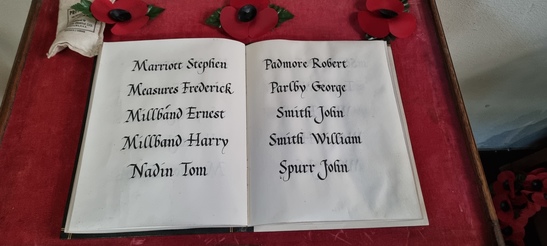 Marriott Stephen
Measures Frederick
Millband Ernest
Millband Harry
Nadin Tom
Padmore Robert
Parlby George
Smith John
Smith William
Spurr John